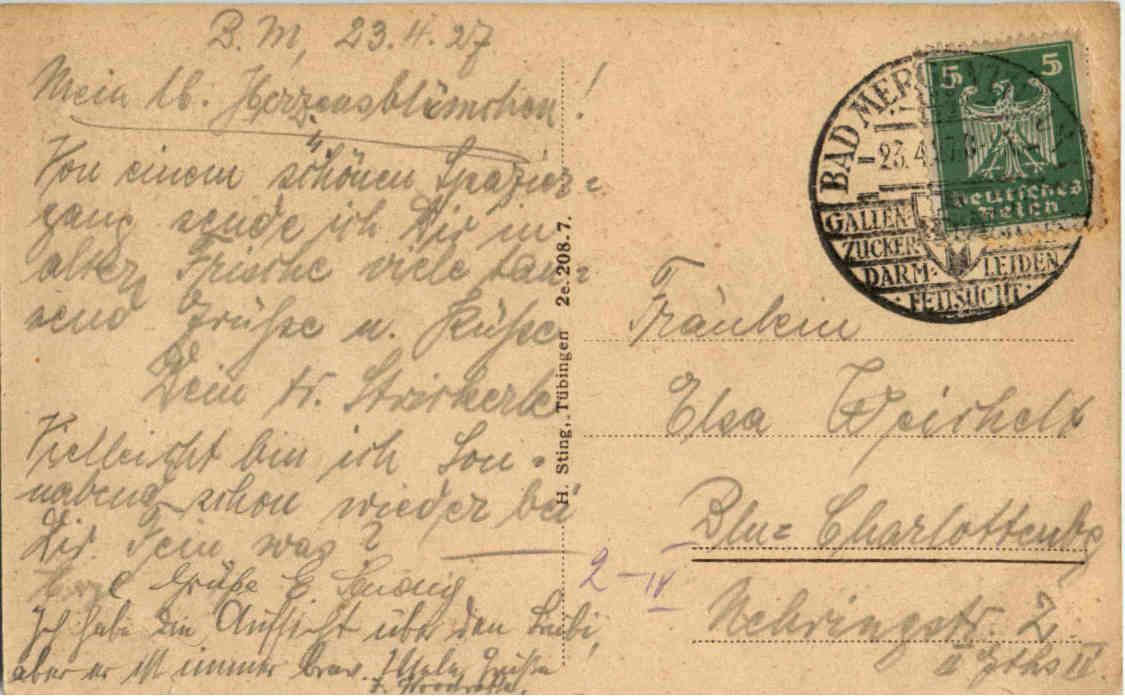 B. M, 23.4.27.
Mein lb. Herzensblümchen!
Von einem schönen Spazier=
gang sende ich Dir in
alter Frische viele tau=
send Grüße u. Küße
Dein tr.
Vielleicht bin ich Son=
nabend schon wieder bei
Dir. Fein was?
Grüße E
Ich habe die Aufsicht über den Bubi,
aber er ist immer brav. Viele Grüße
H. Sting, Tübingen 2e.208.7.
BAD MERGENTHEIM
23.4.27.
GALLEN-
ZUCKER
DARM- LEIDEN
FETTSUCHT
5 5
Deutsches
Reich
Fräulein
Elsa Weichelt
Bln= Charlottenbg
2-IV
Nehringstr. 2.
II Gths IV.